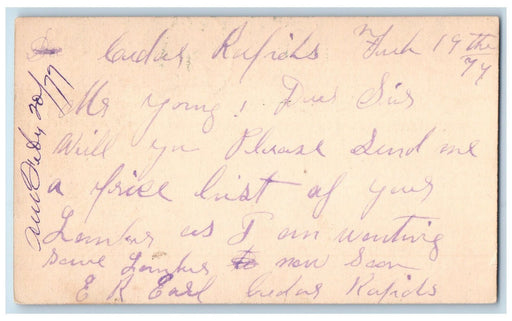 Cedar Rapids Feb 19 the
79
Mr Young, Dear Sir
Will you Please Send me
a price list of your
Lumber as I am wanting
some Lumber to now Soon
E R Earl Cedar Rapids
Ans Feby 20/79